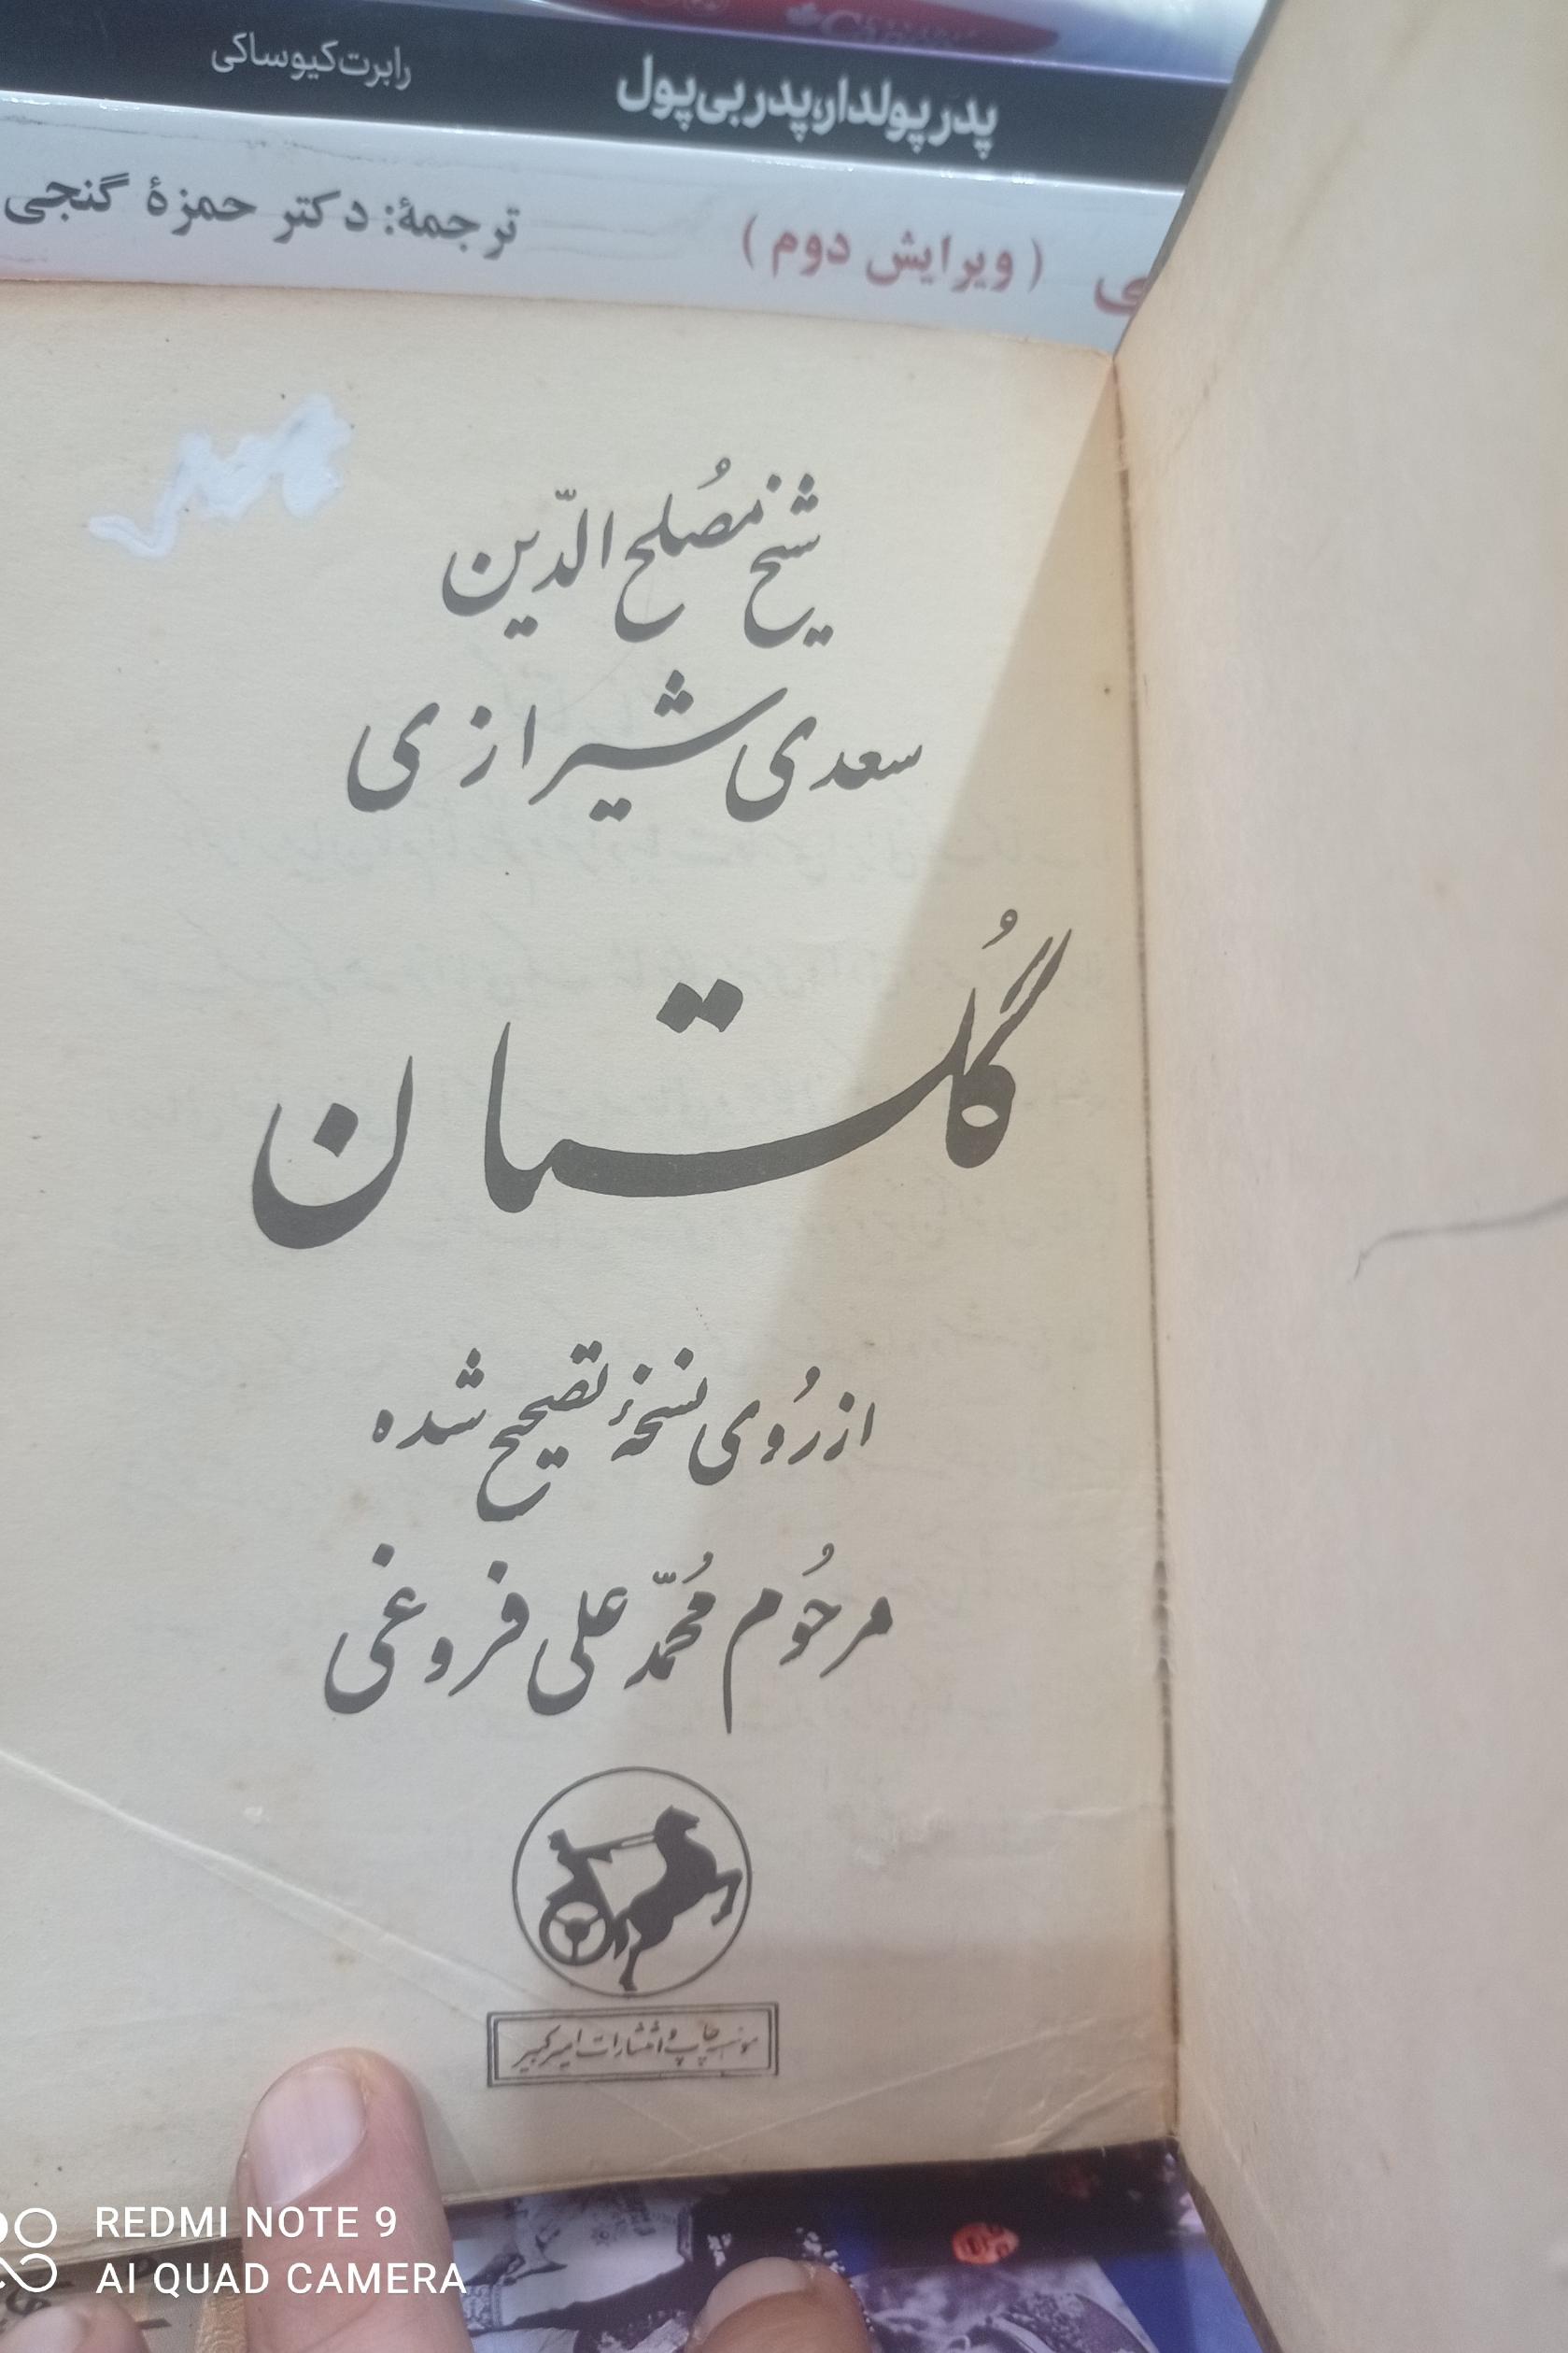 پدر پولدار، پدر بی‌پول رابرت کیوساکی
ی (ویرایش دوم) ترجمهٔ: دکتر حمزهٔ گنجی
شیخ مُصلح الدّین
سعدی شیرازی
گُلستان
از رُوی نسخهٔ تصحیح شده
مرحُوم مُحمّد علی فروغی
موسسه چاپ و انتشارات امیرکبیر
REDMI NOTE 9
AI QUAD CAMERA